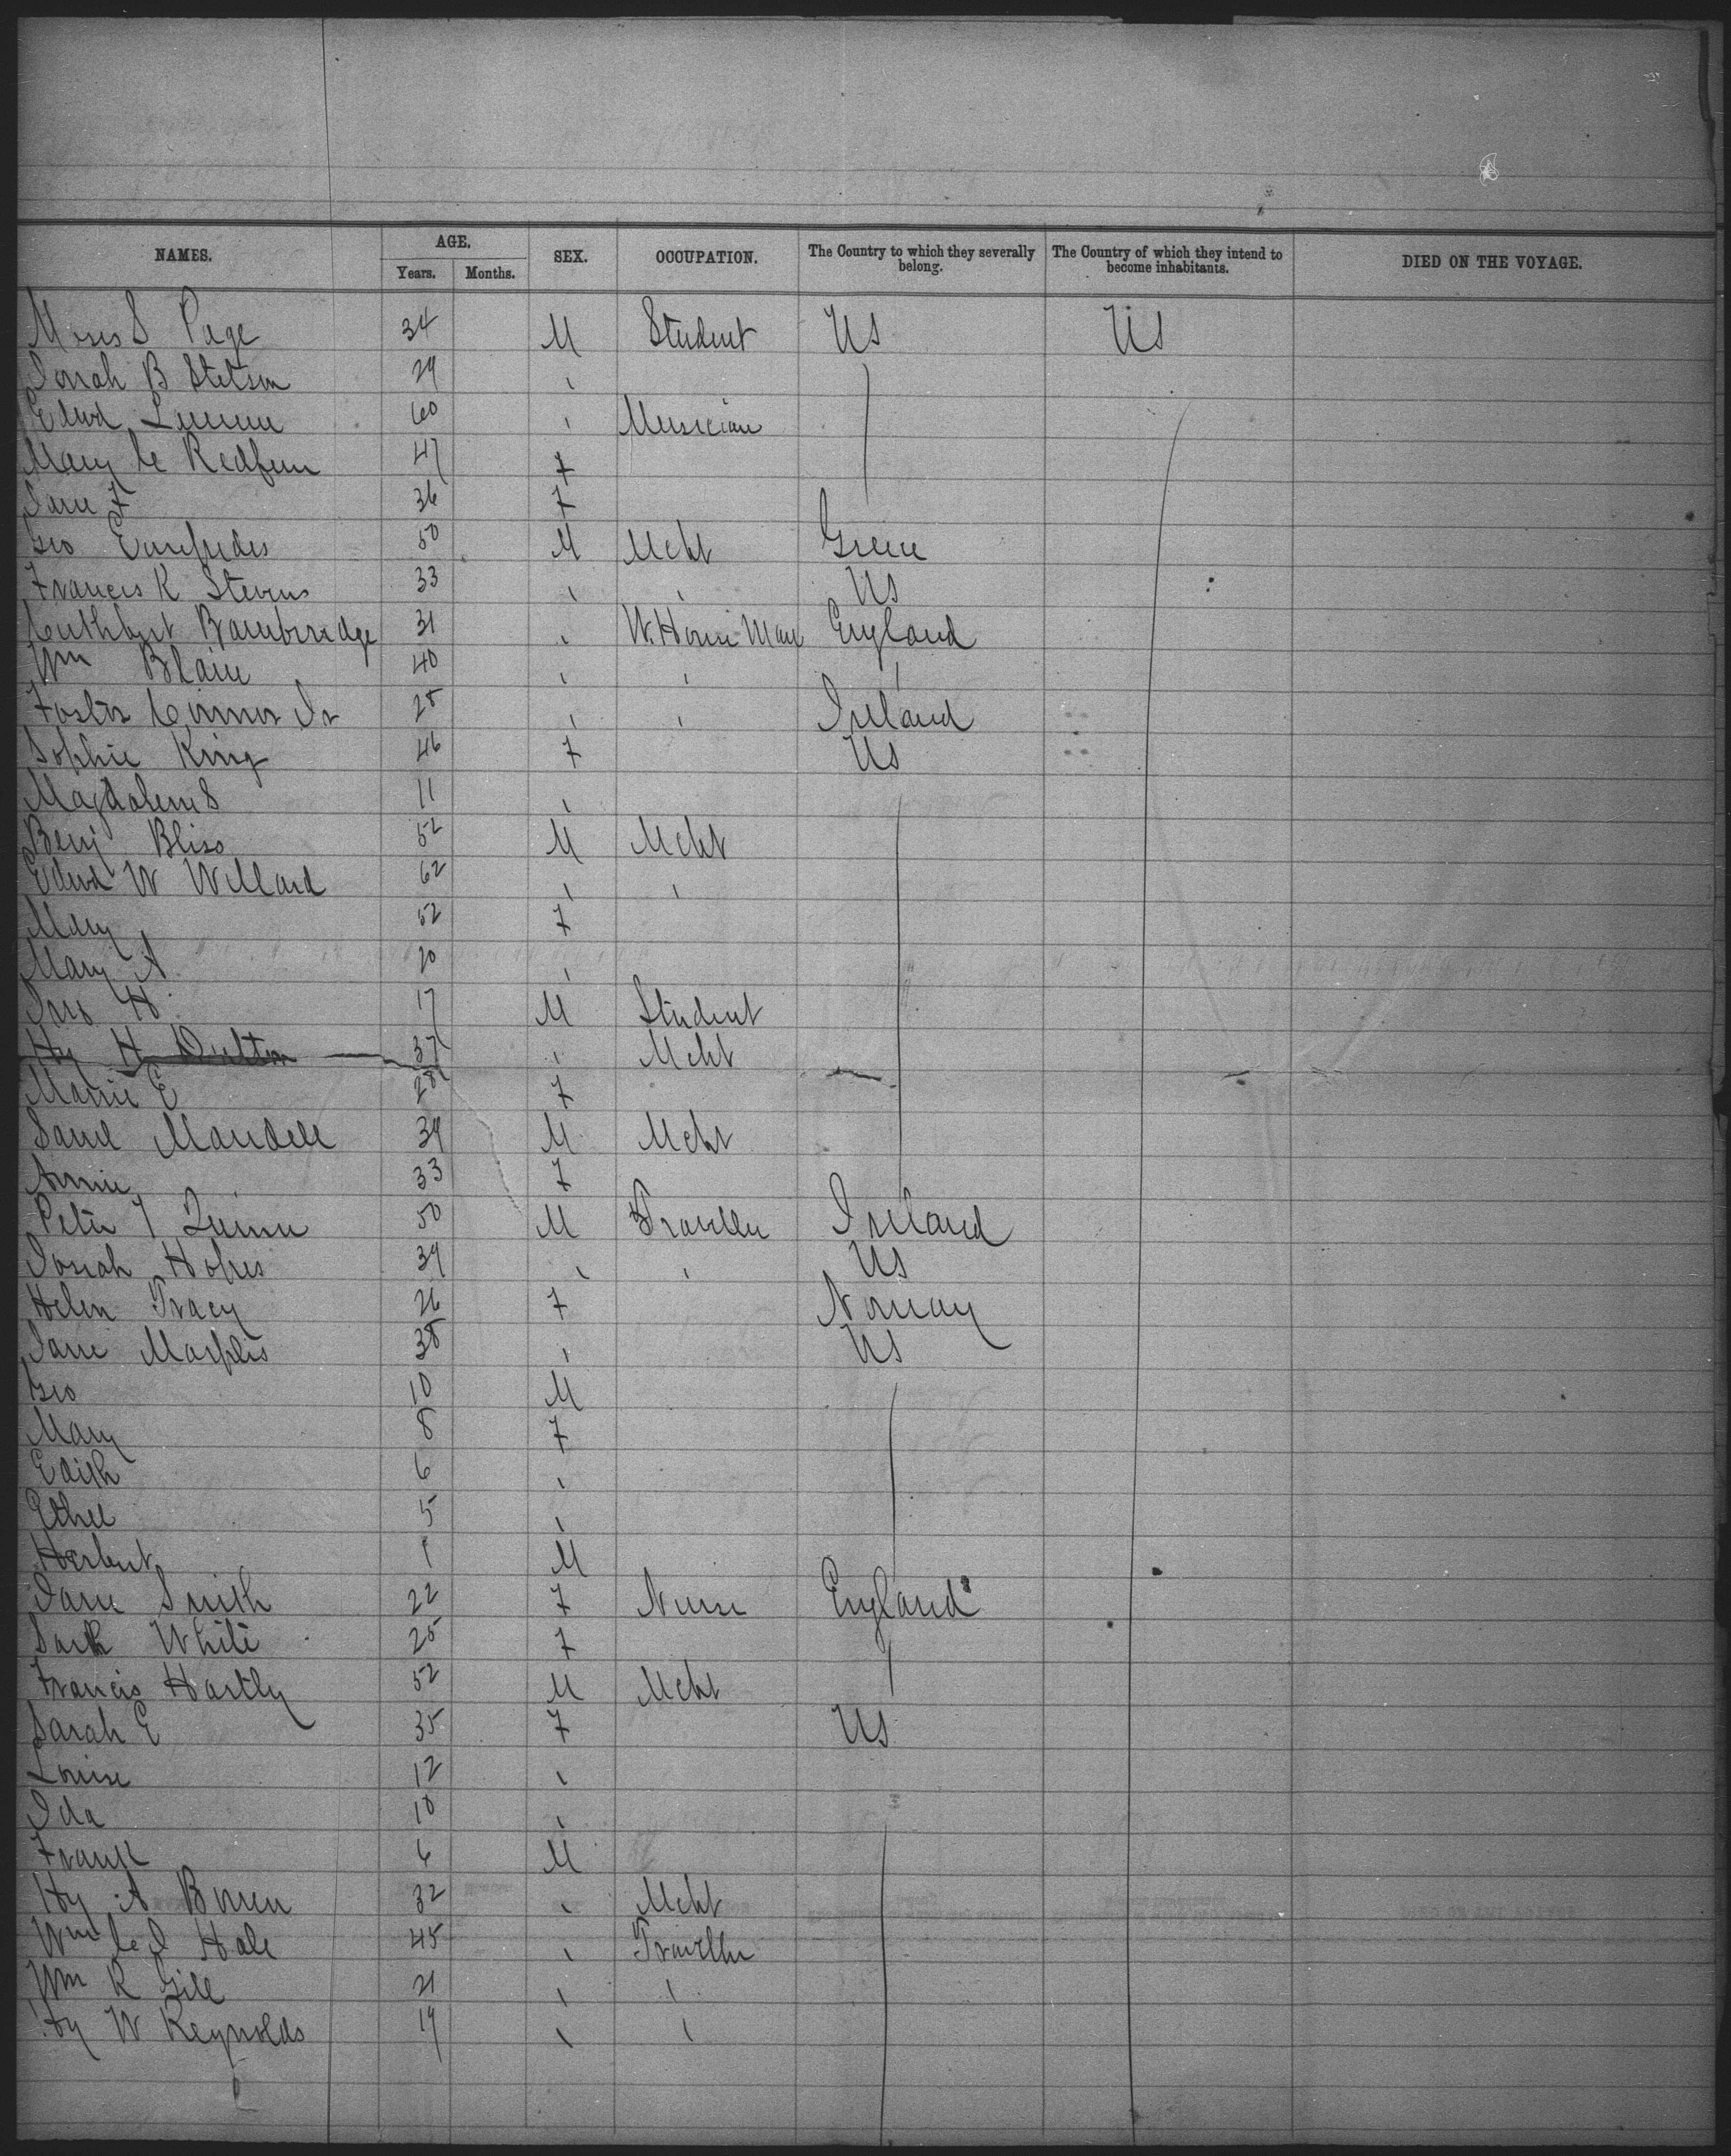 NAMES. AGE. SEX. OCCUPATION. The Country to which they severally belong. The Country of which they intend to become inhabitants. DIED ON THE VOYAGE.
Years. Months.
Moses S Page 34 M Student US US
B Stetson 29 "
Edwd 60 " Musician
Mary C Redfern 47 F
Jane F 36 F
Geo 50 M Mcht Greece
Francis K Stevens 33 " " US
Cuthbert Bambridge 31 " W. House Man England
Wm Blain 40 " " "
Foster Connor Jr 28 " " Ireland
Sophie King 46 F US
Magdalen S 11 "
Benj Bliss 52 M Mcht
Edwd W Willard 62 " "
Mary 52 F
Mary A 20 "
Jas H 17 M Student
Hy H Dutton 37 " Mcht
Mamie E 28 F
Saml Mandell 39 M Mcht
Annie 33 F
Peter J Quinn 50 M Traveller Ireland
Josiah 39 " " US
Helen Tracy 26 F Norway
Jane 38 " US
Geo 10 M
Mary 8 F
Edith 6 "
Ethel 5 "
Herbert 1 M
Jane Smith 22 F Nurse England
White 25 F
Francis Hartly 52 M Mcht
Sarah E 35 F US
Louise 12 "
Ida 10 "
Frank 6 M
Hy A Bowen 32 " Mcht
Wm C J Hale 45 " Traveller
Wm R Gill 21 " "
Hy W Reynolds 19 " "